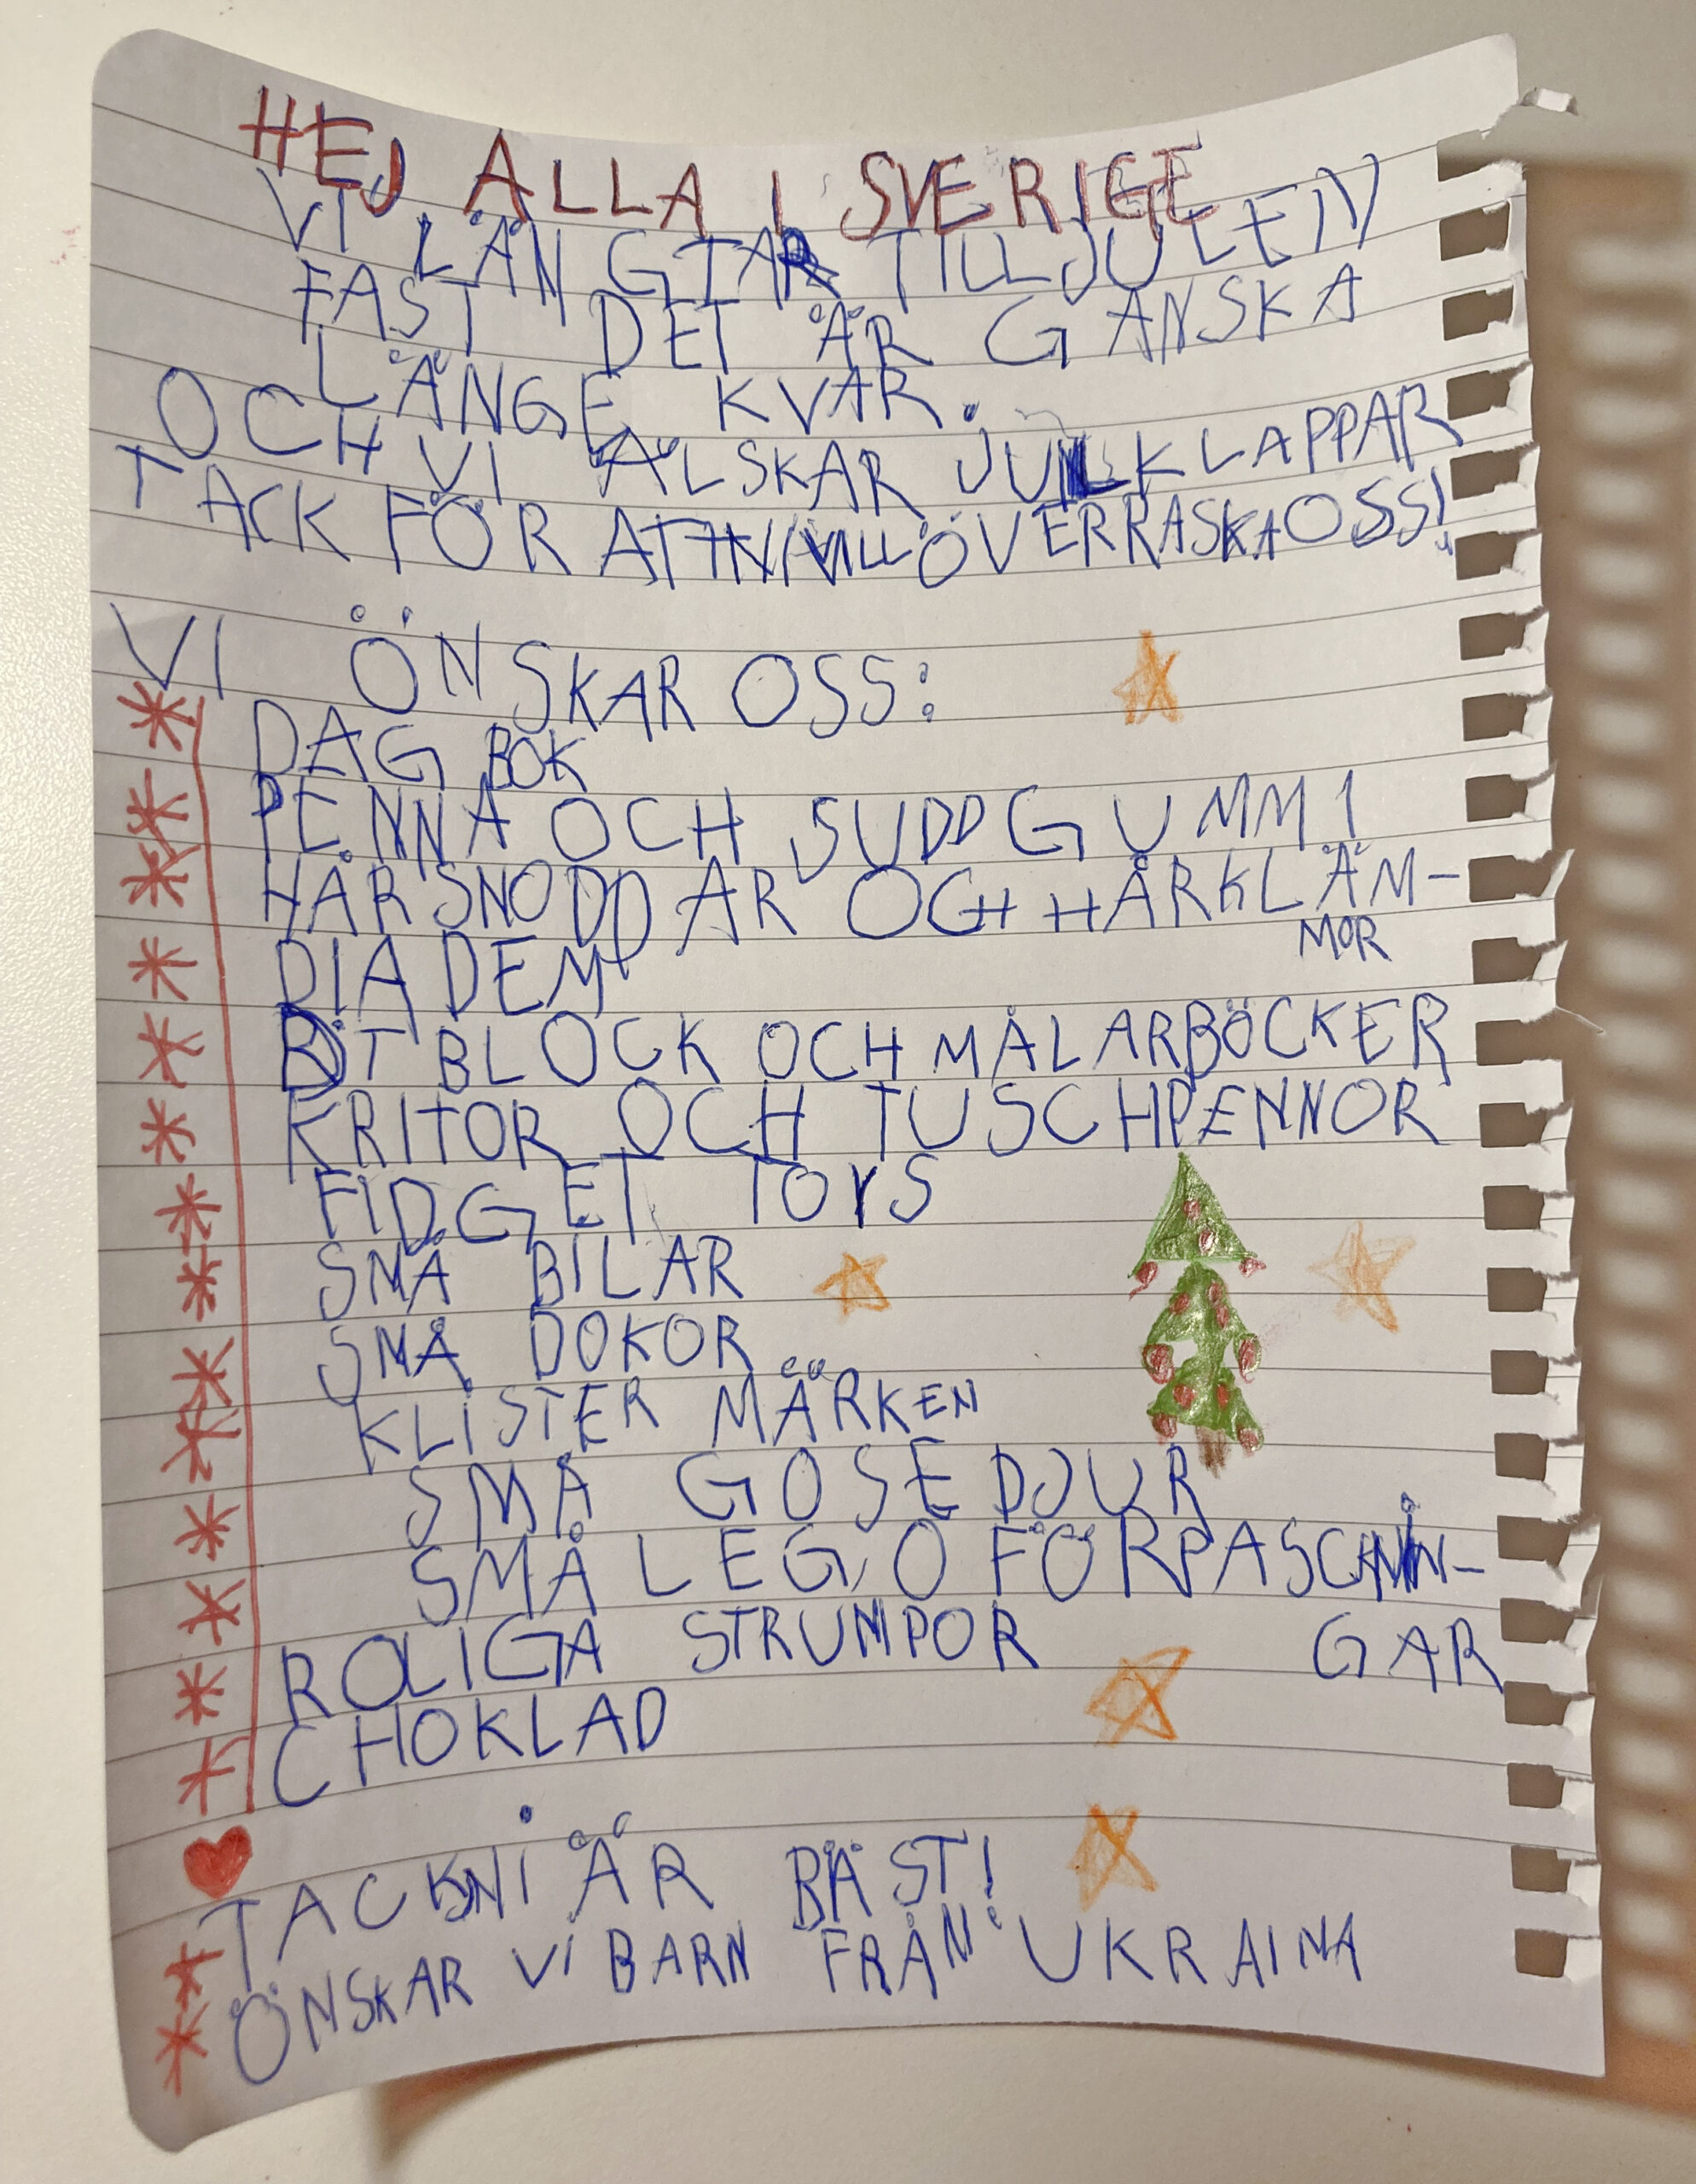 HEJ ALLA I SVERIGE
VI LÄNGTAR TILL JULEN
FAST DET ÄR GANSKA
LÄNGE KVAR.
OCH VI ÄLSKAR JULKLAPPAR
TACK FÖR ATT NI VILL ÖVERRASKA OSS!
VI ÖNSKAR OSS:
DAG BOK
PENNA OCH SUDDGUMMI
HÅRSNODDAR OCH HÅRKLÄM-
MOR
DIADEM
RIT BLOCK OCH MÅLARBÖCKER
KRITOR OCH TUSCHPENNOR
FIDGET TOYS
SMÅ BILAR
SMÅ DOKOR
KLISTER MÄRKEN
SMÅ GOSEDJUR
SMÅ LEGO FÖRPASCHNIN-
GAR
ROLIGA STRUMPOR
CHOKLAD
TACK NI ÄR BÄST!
ÖNSKAR VI BARN FRÅN UKRAINA